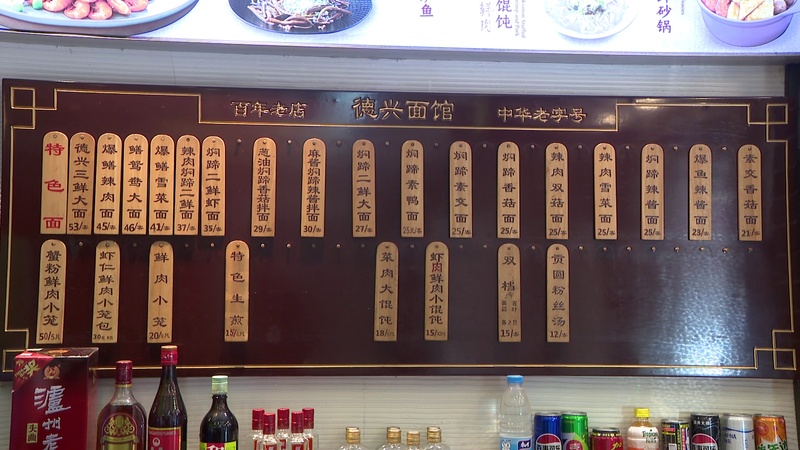 鱼
馄饨
砂锅
百年老店
德兴面馆
中华老字号
特色面
德兴三鲜大面 53/碗
爆鳝辣肉面 45/碗
鳝鸳鸯大面 46/碗
爆鳝雪菜面 41/碗
辣肉焖蹄二鲜面 37/碗
焖蹄二鲜虾面 35/碗
葱油焖蹄香菇拌面 29/碗
麻酱焖蹄辣酱拌面 30/碗
焖蹄二鲜大面 27/碗
焖蹄素鸭面 25/碗
焖蹄素交面 25/碗
焖蹄香菇面 25/碗
辣肉双菇面 25/碗
辣肉雪菜面 25/碗
焖蹄辣酱面 25/碗
爆鱼辣酱面 23/碗
素交香菇面 21/碗
蟹粉鲜肉小笼 50/5只
虾仁鲜肉小笼包
鲜肉小笼
特色生煎
菜肉大馄饨
虾肉鲜肉小馄饨
双档 15/碗
贡圆粉丝汤 12/碗
泸州老
头曲